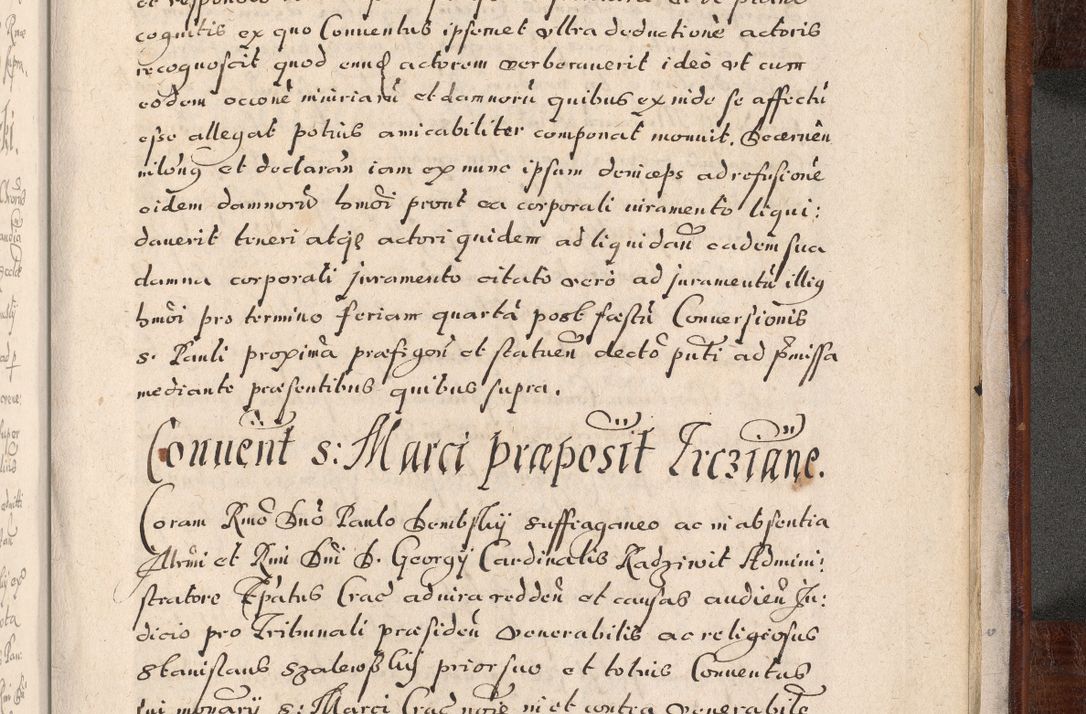 cognitis ex quo Conventus ipsemet ultra deductionē actoris
recognoscit quod eund actorem verberaverit ideo vt cum
eodem occone iniuriarū et damnorū quibus ex inde se affectū
esse allegat potius amicabiliter componat monuit. Decernēn
nilong et declarān iam ex nunc ipsum deniceps ad refusionē
eidem damnorū hmōi prout ea corporali iuramento liqui:
daverit teneri atqȝ actori quidem ad liquidān eadem sua
damna corporali juramento citato vero ad juramentū illig
hmōi pro termino feriam quartā post festū Conversionis
s. Pauli proximā præfigen et statuēn dectō pnti ad p̄missa
mediante præsentibus quibus supra.
Convēnt s: Marci præposit Trczianē.
Coram Rmō Dnō Paulo Dembskij suffraganeo ac in absentia
Illrmi et Rmi Dni D. Georgij Cardinalis Radziwil Admini:
stratore Epātus Crac ad iura reddēn et causas audiēn Ju:
dicio pro Tribunali præsidēn venerabilis ac religiosus
Stanislaus Szalewsskij prior suo et totius Conventus
sui monarij s: Marci Crac noīe ni et contra venerabilē